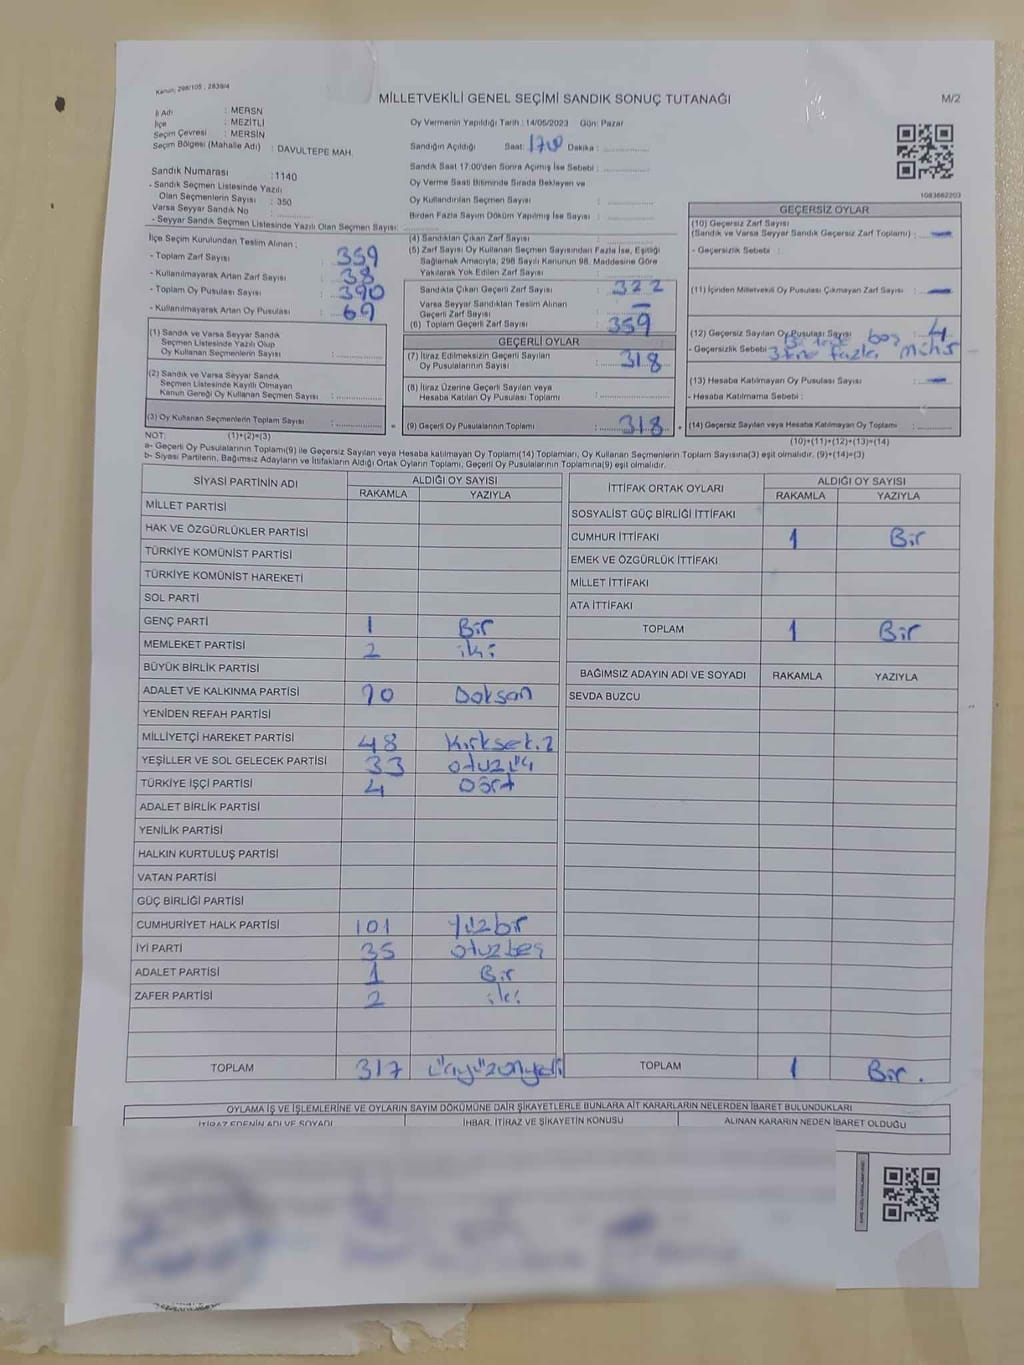 Kanun, 298/105 , 2839/4
MİLLETVEKİLİ GENEL SEÇİMİ SANDIK SONUÇ TUTANAĞI
M/2
İl Adı : MERSN
İlçe : MEZİTLİ
Seçim Çevresi : MERSİN
Seçim Bölgesi (Mahalle Adı) : DAVULTEPE MAH.
Sandık Numarası :1140
- Sandık Seçmen Listesinde Yazılı
Olan Seçmenlerin Sayısı : 350
Varsa Seyyar Sandık No :
- Seyyar Sandık Seçmen Listesinde Yazılı Olan Seçmen Sayısı:
Oy Vermenin Yapıldığı Tarih : 14/05/2023 Gün: Pazar
Sandığın Açıldığı Saat: Dakika :
Sandık Saat 17:00'den Sonra Açımış İse Sebebi :
Oy Verme Saati Bitiminde Sırada Bekleyen ve
Oy Kullandırılan Seçmen Sayısı :
Birden Fazla Sayım Döküm Yapılmış İse Sayısı :
1083662203
İlçe Seçim Kurulundan Teslim Alınan :
- Toplam Zarf Sayısı : 359
- Kullanılmayarak Artan Zarf Sayısı : 38
- Toplam Oy Pusulası Sayısı : 390
- Kullanılmayarak Artan Oy Pusulası : 69
(1) Sandık ve Varsa Seyyar Sandık
Seçmen Listesinde Yazılı Olup
Oy Kullanan Seçmenlerin Sayısı :
(2) Sandık ve Varsa Seyyar Sandık
Seçmen Listesinde Kayıtlı Olmayan
Kanun Gereği Oy Kullanan Seçmen Sayısı :
(3) Oy Kullanan Seçmenlerin Toplam Sayısı :
(4) Sandıktan Çıkan Zarf Sayısı :
(5) Zarf Sayısı Oy Kullanan Seçmen Sayısından Fazla İse, Eşitliği
Sağlamak Amacıyla; 298 Sayılı Kanunun 98. Maddesine Göre
Yakılarak Yok Edilen Zarf Sayısı :
Sandıkta Çıkan Geçerli Zarf Sayısı : 322
Varsa Seyyar Sandıktan Teslim Alınan
Geçerli Zarf Sayısı : —
(6) Toplam Geçerli Zarf Sayısı : 359
GEÇERLİ OYLAR
(7) İtiraz Edilmeksizin Geçerli Sayılan
Oy Pusulalarının Sayısı : 318
(8) İtiraz Üzerine Geçerli Sayılan veya
Hesaba Katılan Oy Pusulası Toplamı :
(9) Geçerli Oy Pusulalarının Toplamı : 318
GEÇERSİZ OYLAR
(10) Geçersiz Zarf Sayısı
(Sandık ve Varsa Seyyar Sandık Geçersiz Zarf Toplamı) : —
- Geçersizlik Sebebi :
(11) İçinden Milletvekili Oy Pusulası Çıkmayan Zarf Sayısı : —
(12) Geçersiz Sayılan Oy Pusulası Sayısı : 4
boş
- Geçersizlik Sebebi 3 fazla
(13) Hesaba Katılmayan Oy Pusulası Sayısı : —
- Hesaba Katılmama Sebebi :
(14) Geçersiz Sayılan veya Hesaba Katılmayan Oy Toplamı :
NOT: (1)+(2)=(3)
(10)+(11)+(12)+(13)=(14)
a- Geçerli Oy Pusulalarının Toplamı(9) ile Geçersiz Sayılan veya Hesaba katılmayan Oy Toplamı(14) Toplamları, Oy Kullanan Seçmenlerin Toplam Sayısına(3) eşit olmalıdır. (9)+(14)=(3)
b- Siyasi Partilerin, Bağımsız Adayların ve İttifakların Aldığı Ortak Oyların Toplamı, Geçerli Oy Pusulalarının Toplamına(9) eşit olmalıdır.
SİYASİ PARTİNİN ADI ALDIĞI OY SAYISI
RAKAMLA YAZIYLA
MİLLET PARTİSİ
HAK VE ÖZGÜRLÜKLER PARTİSİ
TÜRKİYE KOMÜNİST PARTİSİ
TÜRKİYE KOMÜNİST HAREKETİ
SOL PARTİ
GENÇ PARTİ 1 Bir
MEMLEKET PARTİSİ 2 iki
BÜYÜK BİRLİK PARTİSİ
ADALET VE KALKINMA PARTİSİ 90 Doksan
YENİDEN REFAH PARTİSİ
MİLLİYETÇİ HAREKET PARTİSİ 48 Kırksekiz
YEŞİLLER VE SOL GELECEK PARTİSİ 33 otuzüç
TÜRKİYE İŞÇİ PARTİSİ 4 Dört
ADALET BİRLİK PARTİSİ
YENİLİK PARTİSİ
HALKIN KURTULUŞ PARTİSİ
VATAN PARTİSİ
GÜÇ BİRLİĞİ PARTİSİ
CUMHURİYET HALK PARTİSİ 101 Yüzbir
İYİ PARTİ 35 otuzbeş
ADALET PARTİSİ 1 Bir
ZAFER PARTİSİ 2 iki
TOPLAM 317 üçyüzonyedi
İTTİFAK ORTAK OYLARI ALDIĞI OY SAYISI
RAKAMLA YAZIYLA
SOSYALİST GÜÇ BİRLİĞİ İTTİFAKI
CUMHUR İTTİFAKI 1 Bir
EMEK VE ÖZGÜRLÜK İTTİFAKI
MİLLET İTTİFAKI
ATA İTTİFAKI
TOPLAM 1 Bir
BAĞIMSIZ ADAYIN ADI VE SOYADI RAKAMLA YAZIYLA
SEVDA BUZCU
TOPLAM 1 Bir.
OYLAMA İŞ VE İŞLEMLERİNE VE OYLARIN SAYIM DÖKÜMÜNE DAİR ŞİKAYETLERLE BUNLARA AİT KARARLARIN NELERDEN İBARET BULUNDUKLARI
İTİRAZ EDENİN ADI VE SOYADI İHBAR, İTİRAZ VE ŞİKAYETİN KONUSU ALINAN KARARIN NEDEN İBARET OLDUĞU